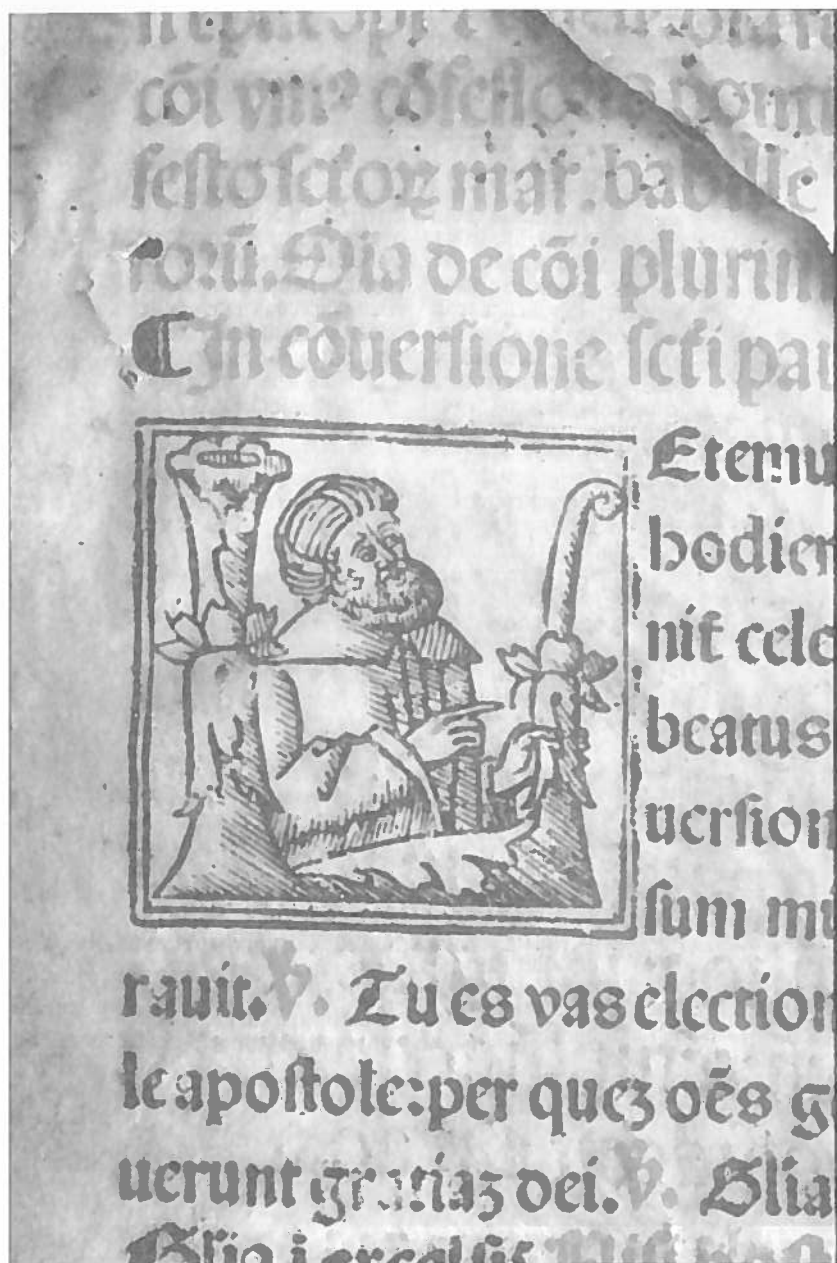 cōi vniꝰ cōfessoris
festo sctoꝝ mar̄. babille
roꝛū. Oīa de cōi plurim
¶ In cōuersione scti pau
LEtemu
hodier
nit cele
beatus
uersion
sum mu
rauit. ℣. Tu es vas election
le apostole: per quez oēs g
uerunt gratiaz dei. ℣. Glia
Glia i excelsis